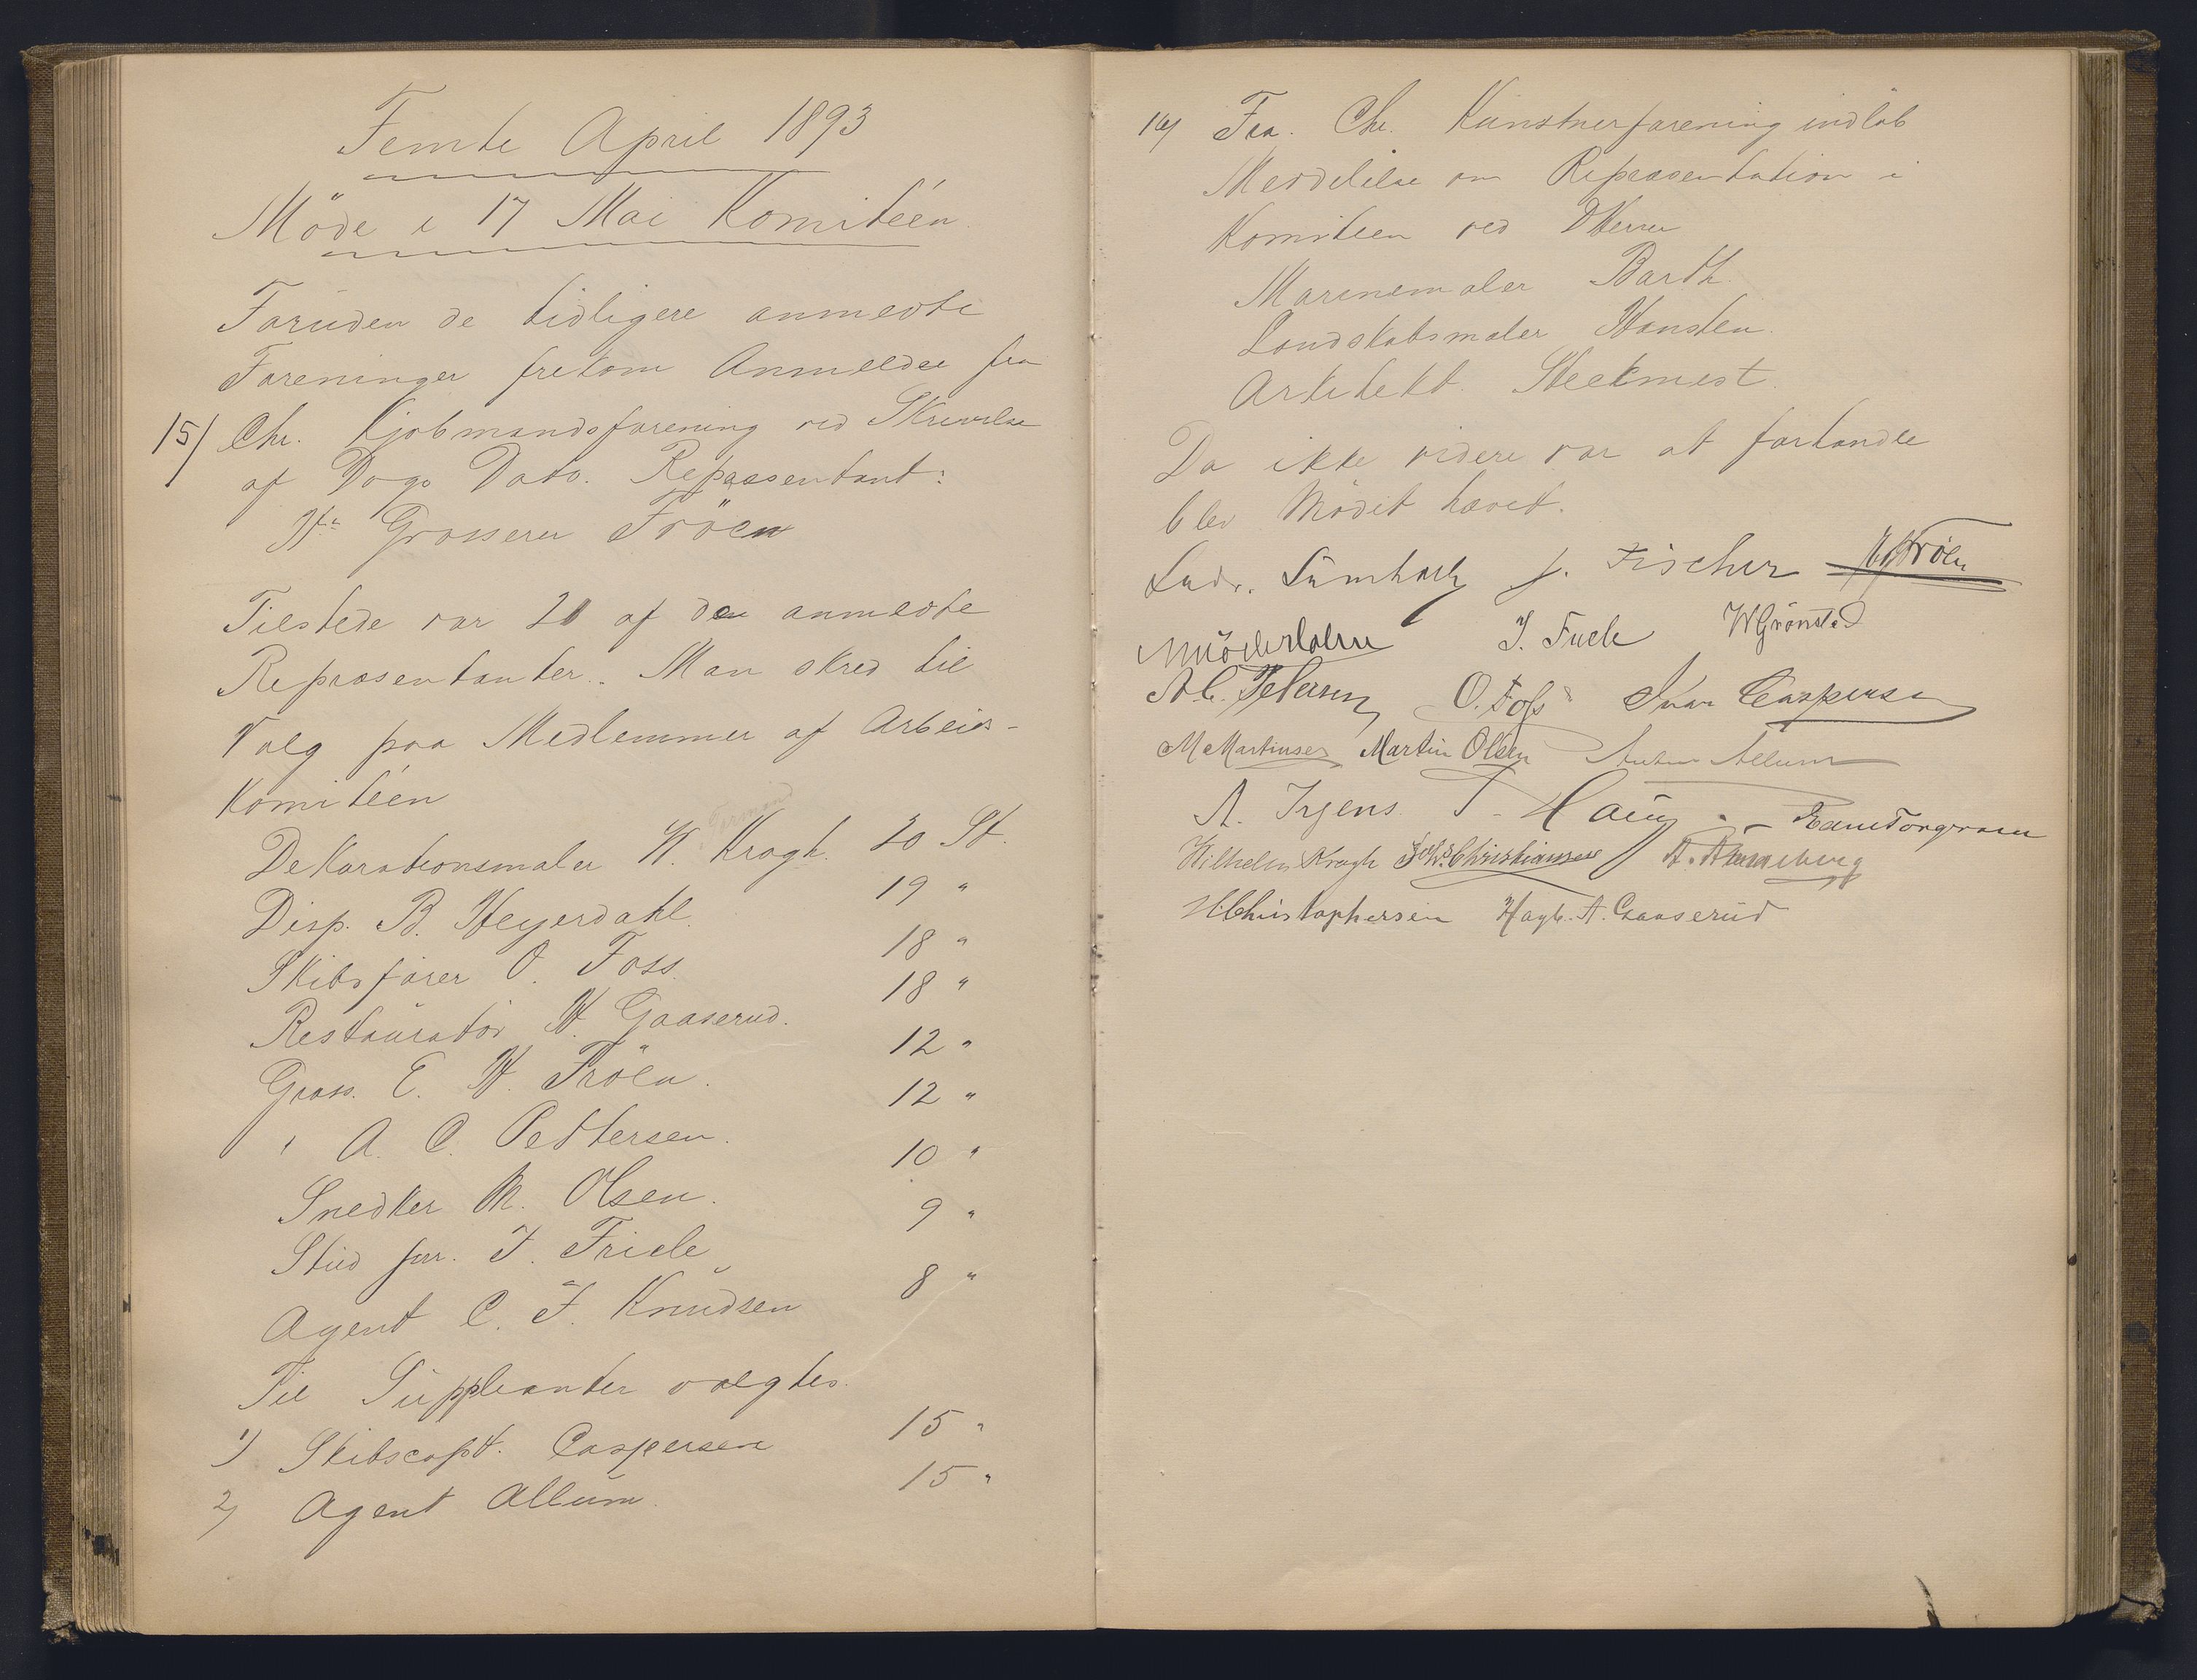 Femte April 1893
Möde i 17 Mai Komitéen
Foruden de tidligere anmeldte
Foreninger frekom Anmeldse fra
15) Chr. Kjøbmandsforening ved Skrivelse
af Dags Dato. Repræsentant:
Hr Grosserer Fröen
Tilstede var 21 af den anmeldte
Repræsentanter. Man skred til
Valg paa Medlemmer af Arbeids-
Komitéen
Formand
Dekorationsmaler W. Krogh. 20 St.
Disp. B. Heyerdahl. 19 "
Skibsförer O. Foss 18 "
Restauratör H. Gaaserud. 18 "
Gross. E. H. Fröen. 12 "
" A. C. Pettersen. 12 "
Snedker M. Olsen. 10 "
Stud jur. J. Friele 9 "
Agent C. F. Knudsen 8 "
Til Suppleanter valgtes.
1) Skibscapt. Caspersen 15 "
2) Agent Allum. 15 "
16) Fra Chr. Kunstnerforening indløb
Meddelelse om Repræsentation i
Komiteen ved DHerrer
Marinemaler Barth.
Landskabsmaler Hansten.
Arkitekt. Steckmest.
Da ikke videre var at forhandle
blev Mödet hævet.
Ludv. J. Fischer EHFröen
J. Friele WGrönsted
A.C. Petersen O. Foss Ivar Caspersen
M Martinsen Martin Olsen Anton Allum
A. Irgens. T. Haug
Wilhelm Krogh Joh. Christiansen
H. Christophersen Hagb. A. Gaaserud